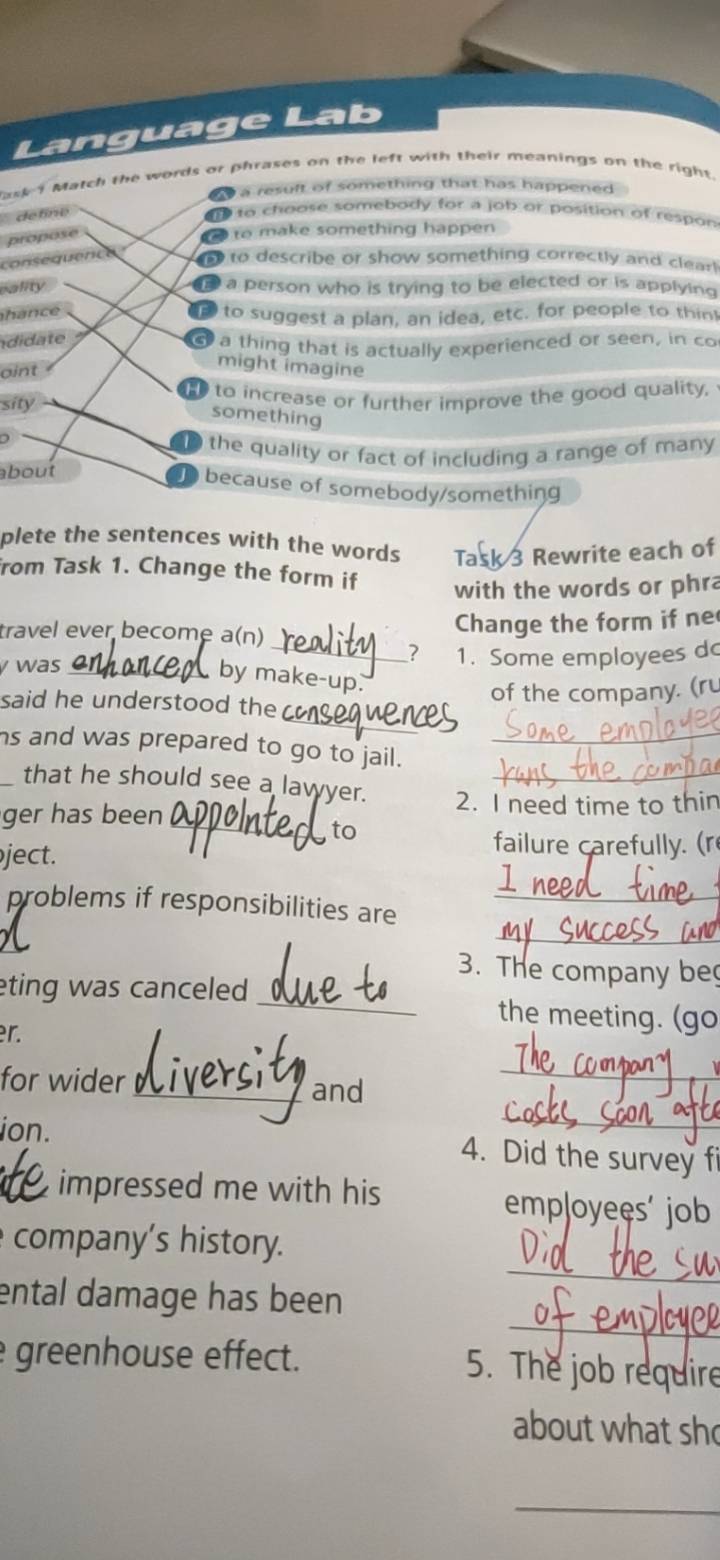 Language Lab
Match the words or phrases on the left with their meanings on the right.
define
propose
consequence
eality
hance
didate
oint
sity
o
about
A a result of something that has happened
B to choose somebody for a job or position of respon
C to make something happen
D to describe or show something correctly and clearl
E a person who is trying to be elected or is applying
F to suggest a plan, an idea, etc. for people to think
G a thing that is actually experienced or seen, in co
might imagine
H to increase or further improve the good quality,
something
I the quality or fact of including a range of many
J because of somebody/something
plete the sentences with the words
rom Task 1. Change the form if
travel ever become a(n) reality ?
y was enhanced by make-up.
said he understood the consequences
ns and was prepared to go to jail.
that he should see a lawyer.
ger has been appointed to
oject.
problems if responsibilities are
d
eting was canceled due to
er.
for wider diversity and
ion.
ate impressed me with his
e company's history.
ental damage has been
e greenhouse effect.
Task 3 Rewrite each of
with the words or phra
Change the form if ne
1. Some employees do
of the company. (ru
Some employee
runs the compan
2. I need time to thin
failure carefully. (re
I need time t
my success and
3. The company beg
the meeting. (go
The company
costs soon afte
4. Did the survey fi
employees' job
Did the su
of employee
5. The job require
about what sho